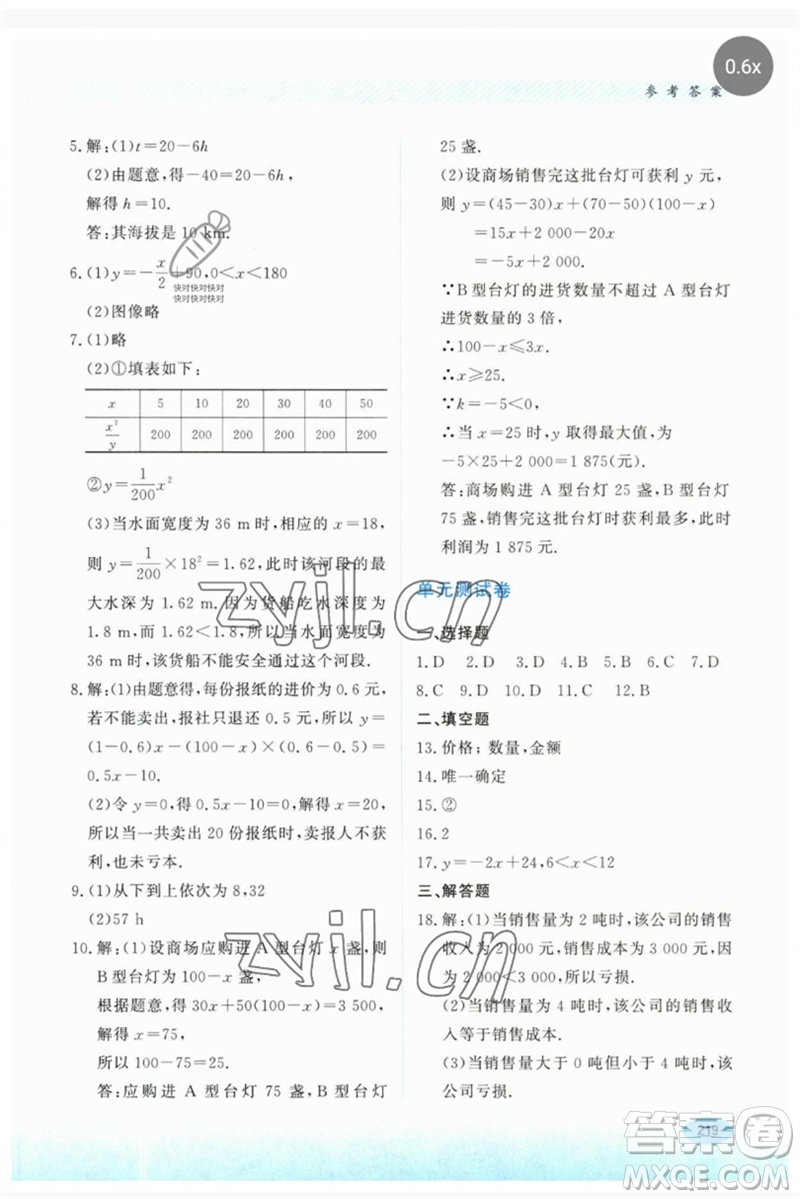 0.6x
参考答案
5.解:(1)t=20-6h
(2)由题意,得-40=20-6h,
解得 h=10.
答:其海拔是 10 km.
6.(1)y=-x/2+90,0<x<180
快对快对快对
快对快对快对
(2)图像略
7.(1)略
(2)①填表如下:
x 5 10 20 30 40 50
x²/y 200 200 200 200 200 200
②y=1/200x²
(3)当水面宽度为 36 m 时,相应的 x=18,
则 y=1/200×18²=1.62,此时该河段的最
大水深为 1.62 m. 因为货船吃水深度为
1.8 m,而 1.62<1.8,所以当水面宽度为
36 m 时,该货船不能安全通过这个河段.
8.解:(1)由题意得,每份报纸的进价为 0.6 元,
若不能卖出,报社只退还 0.5 元,所以 y=
(1-0.6)x-(100-x)×(0.6-0.5)=
0.5x-10.
(2)令 y=0,得 0.5x-10=0,解得 x=20,
所以当一共卖出 20 份报纸时,卖报人不获
利,也未亏本.
9.(1)从下到上依次为 8,32
(2)57 h
10.解:(1)设商场应购进 A 型台灯 x 盏,则
B 型台灯为 100-x 盏,
根据题意,得 30x+50(100-x)=3 500,
解得 x=75,
所以 100-75=25.
答:应购进 A 型台灯 75 盏,B 型台灯
25 盏.
(2)设商场销售完这批台灯可获利 y 元,
则 y=(45-30)x+(70-50)(100-x)
=15x+2 000-20x
=-5x+2 000.
∵B 型台灯的进货数量不超过 A 型台灯
进货数量的 3 倍,
∴100-x≤3x.
∴x≥25.
∵k=-5<0,
∴当 x=25 时,y 取得最大值,为
-5×25+2 000=1 875(元).
答:商场购进 A 型台灯 25 盏,B 型台灯
75 盏,销售完这批台灯时获利最多,此时
利润为 1 875 元.
单元测试卷
一、选择题
1.D 2.D 3.D 4.D 5.C 6.C 7.D
8.C 9.D 10.D 11.C 12.B
二、填空题
13.价格;数量,金额
14.唯一确定
15.②
16.2
17.y=-2x+24,6<x<12
三、解答题
18.解:(1)当销售量为 2 吨时,该公司的销售
收入为 2 000 元,销售成本为 3 000 元. 因
为 2 000<3 000,所以亏损.
(2)当销售量为 4 吨时,该公司的销售收
入等于销售成本.
(3)当销售量大于 0 吨但小于 4 吨时,该
公司亏损.
219
zyjl.cn
zyjl.cn
答案卷
MXQE.COM